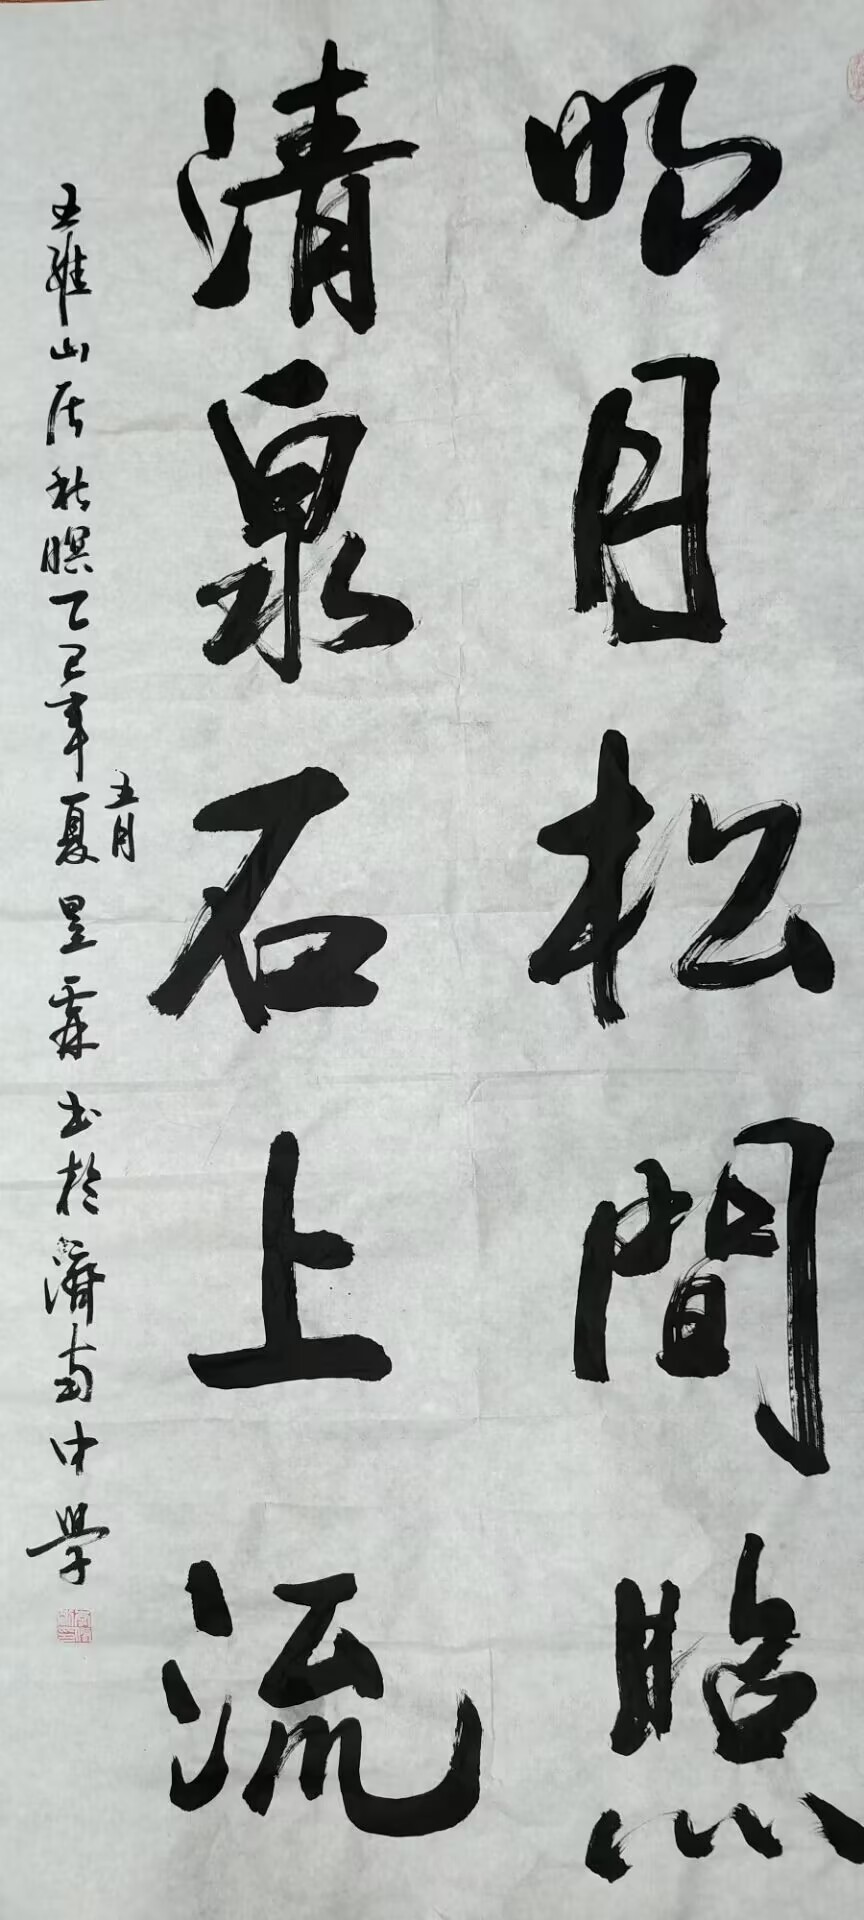 明月松間照
清泉石上流
王維山居秋暝乙巳年夏五月昱霖书於濟南中學